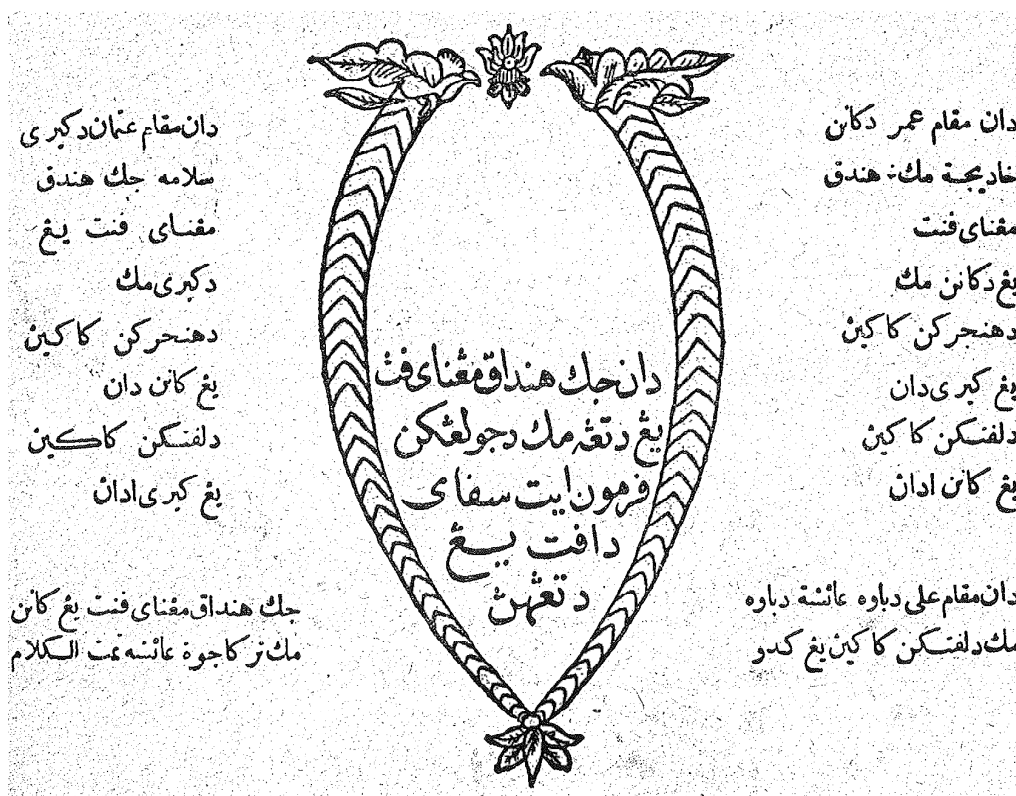 دان مقام عمر دكانن
خاديجة مك هندق
مڠناي فنت
يڠ دكانن مك
دهنجركن كاكين
يڠ كيري دان
دلفتكن كاكين
يڠ كانن ادان
دان مقام علي دباوه عائشة دباوه
مك دلفتكن كاكين يڠ كدو
دان جك هنداق مڠناي فنت
يڠ دتڠه مك دجولڠكن
فرهون ايت سفاي
دافت يڠ
دتڠهن
دان مقام عثمان دكيري
سلامه جك هندق
مڠناي فنت يڠ
دكيري مك
دهنجركن كاكين
يڠ كانن دان
دلفتكن كاكين
يڠ كيري ادان
جك هنداق مڠناي فنت يڠ كانن
مك تركاجوة عائشه تمت الكلام